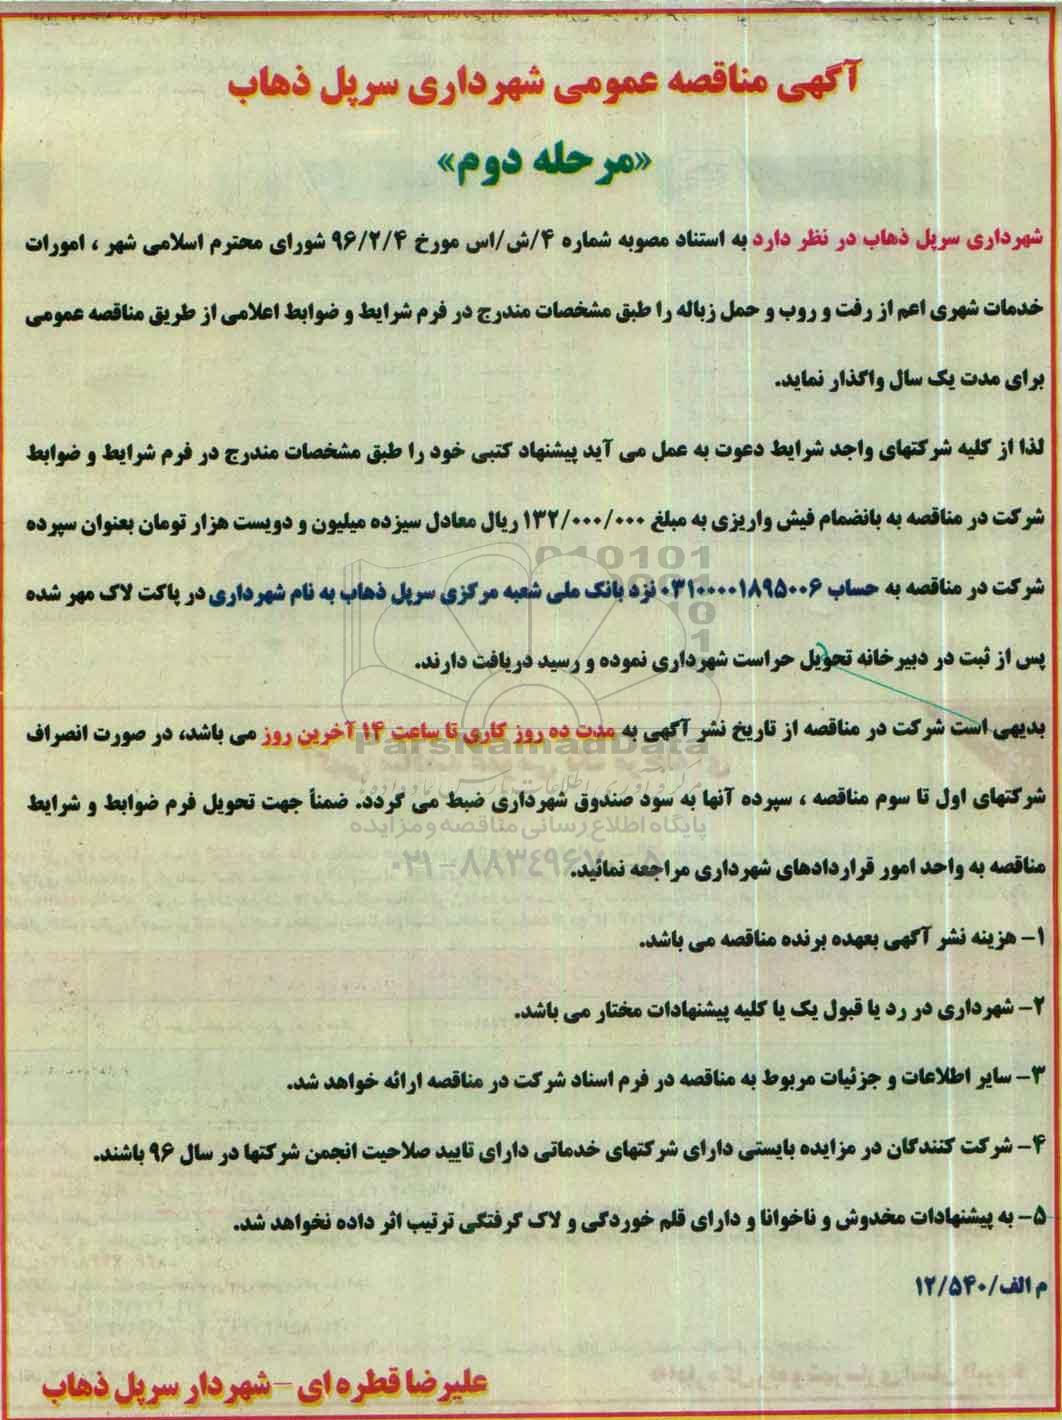 آگهی مناقصه عمومی شهرداری سرپل ذهاب
«مرحله دوم»
شهرداری سرپل ذهاب در نظر دارد به استناد مصوبه شماره ۴/ش/اس مورخ ۹۶/۲/۴ شورای محترم اسلامی شهر ، امورات
خدمات شهری اعم از رفت و روب و حمل زباله را طبق مشخصات مندرج در فرم شرایط و ضوابط اعلامی از طریق مناقصه عمومی
برای مدت یک سال واگذار نماید.
لذا از کلیه شرکتهای واجد شرایط دعوت به عمل می آید پیشنهاد کتبی خود را طبق مشخصات مندرج در فرم شرایط و ضوابط
شرکت در مناقصه به بانضمام فیش واریزی به مبلغ ۱۳۲/۰۰۰/۰۰۰ ریال معادل سیزده میلیون و دویست هزار تومان بعنوان سپرده
شرکت در مناقصه به حساب ۰۳۱۰۰۰۰۱۸۹۵۰۰۶ نزد بانک ملی شعبه مرکزی سرپل ذهاب به نام شهرداری در پاکت لاک مهر شده
پس از ثبت در دبیرخانه تحویل حراست شهرداری نموده و رسید دریافت دارند.
بدیهی است شرکت در مناقصه از تاریخ نشر آگهی به مدت ده روز کاری تا ساعت ۱۴ آخرین روز می باشد، در صورت انصراف
شرکتهای اول تا سوم مناقصه ، سپرده آنها به سود صندوق شهرداری ضبط می گردد. ضمناً جهت تحویل فرم ضوابط و شرایط
مناقصه به واحد امور قراردادهای شهرداری مراجعه نمائید.
۱- هزینه نشر آگهی بعهده برنده مناقصه می باشد.
۲- شهرداری در رد یا قبول یک یا کلیه پیشنهادات مختار می باشد.
۳- سایر اطلاعات و جزئیات مربوط به مناقصه در فرم اسناد شرکت در مناقصه ارائه خواهد شد.
۴- شرکت کنندگان در مزایده بایستی دارای شرکتهای خدماتی دارای تایید صلاحیت انجمن شرکتها در سال ۹۶ باشند.
۵- به پیشنهادات مخدوش و ناخوانا و دارای قلم خوردگی و لاک گرفتگی ترتیب اثر داده نخواهد شد.
م الف/۱۲/۵۴۰
علیرضا قطره ای - شهردار سرپل ذهاب
ParsNamadData
پایگاه اطلاع رسانی مناقصه و مزایده
۰۲۱-۸۸۳۴۹۶۷۰-۵